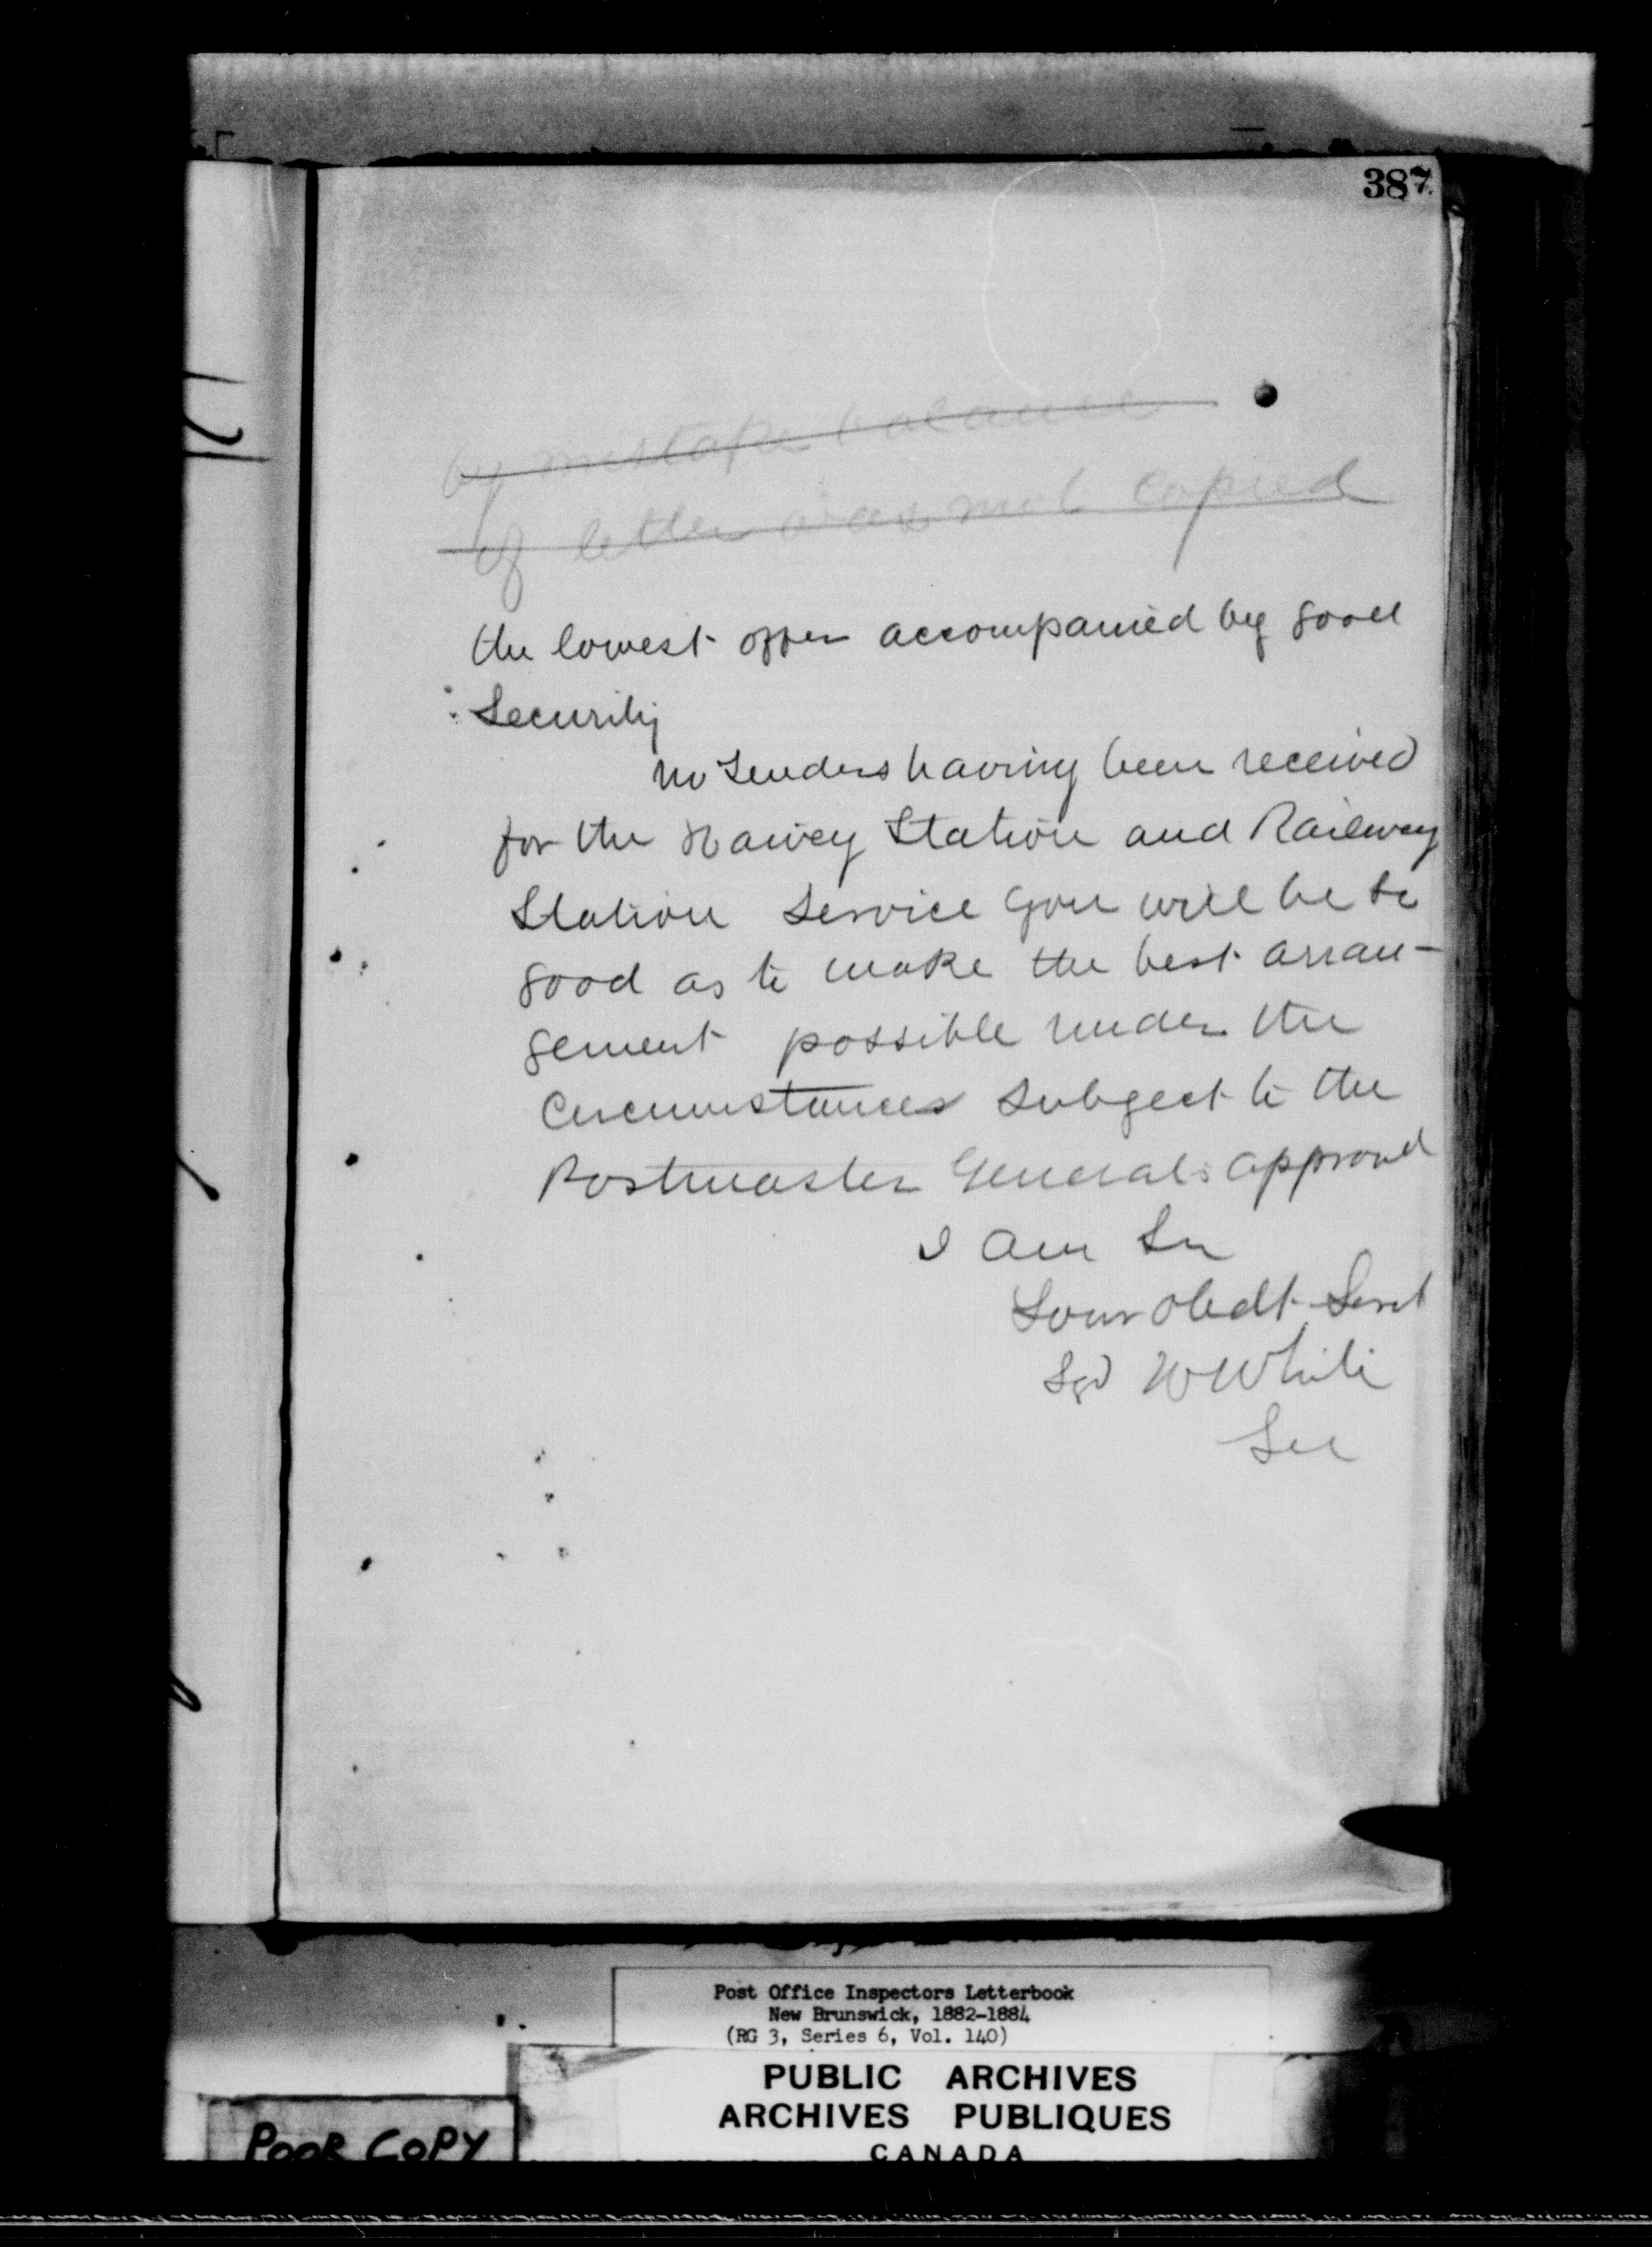 387
by mistake balance
of letter was not copied
the lowest offer accompanied by good
Security
no Tenders having been received
for the Harvey Station and Railway
Station Service you will be so
good as to make the best arran-
gement possible under the
Circumstances subject to the
Postmaster Generals approval
I am Sir
Your obedt Servt
Sgd W White
Sec
Post Office Inspectors Letterbook
New Brunswick, 1882-1884
(RG 3, Series 6, Vol. 140)
PUBLIC ARCHIVES
ARCHIVES PUBLIQUES
CANADA
POOR COPY